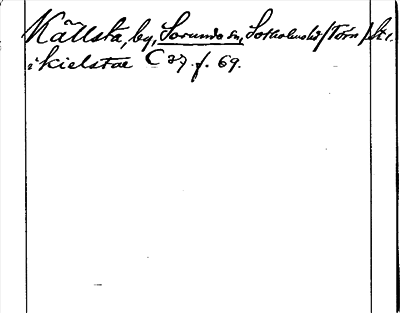 Källsta, by, Sorunda sn, Sotholms hd/Törn/St.
i kielstae C 27. f. 69.